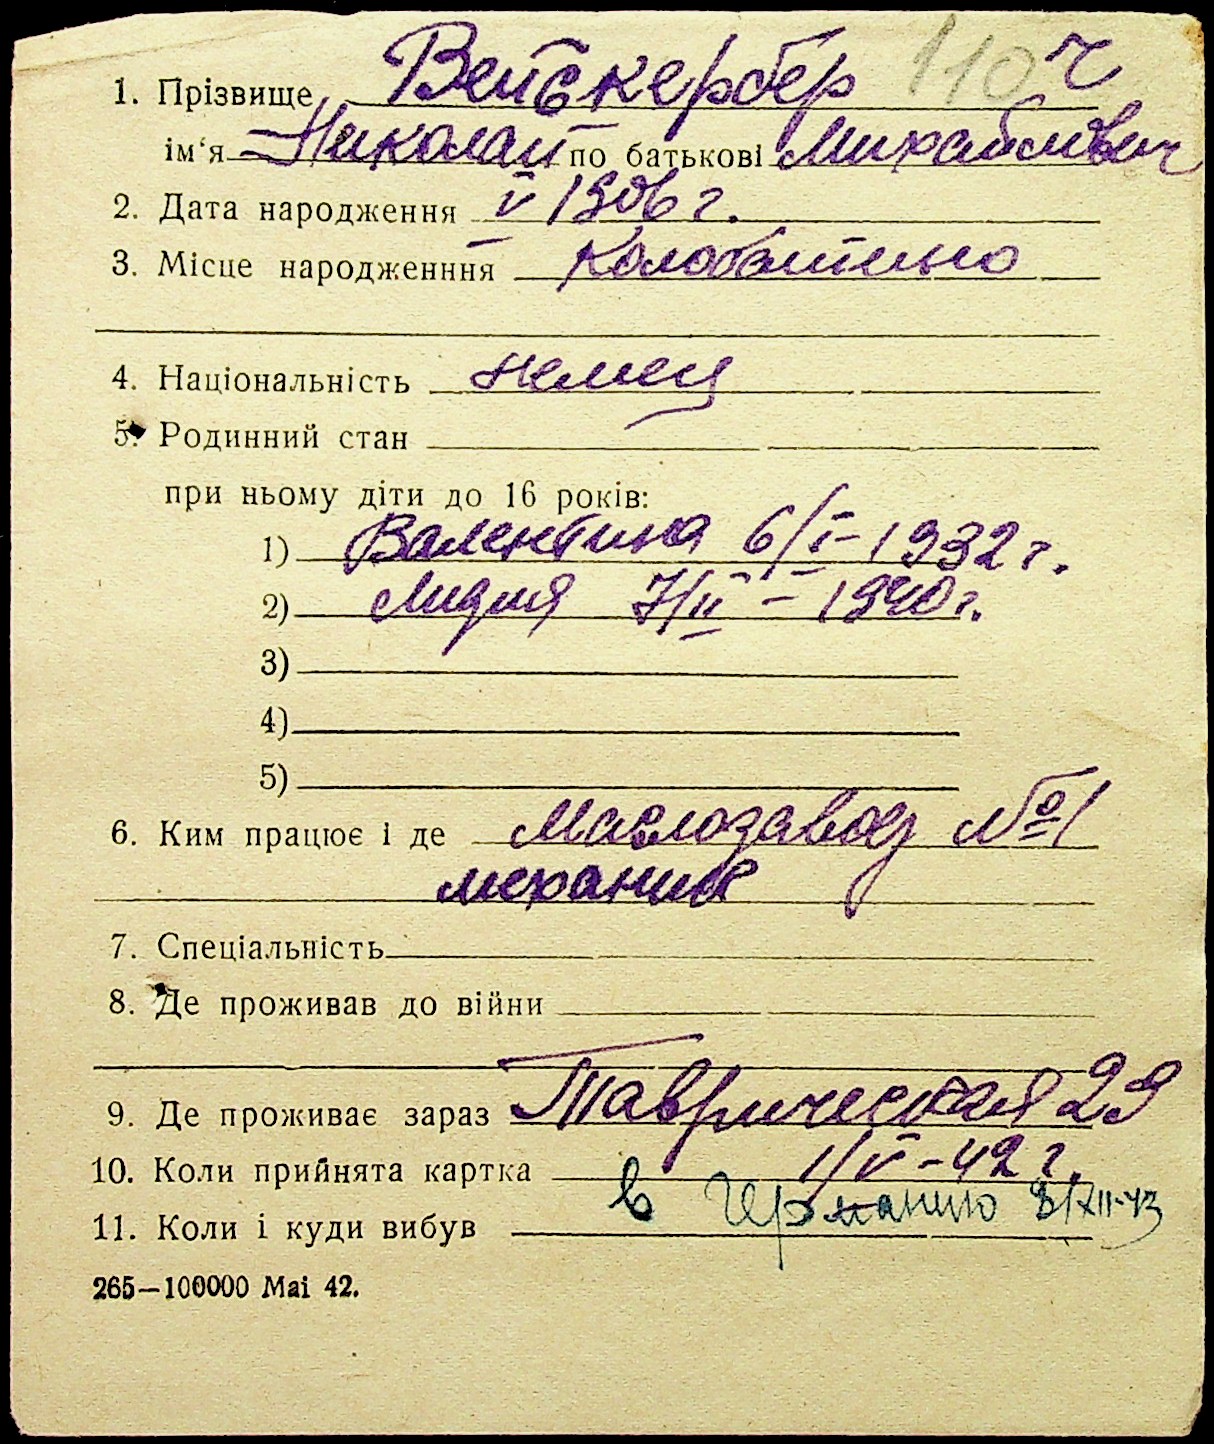 110 ч
1. Прізвище Вейскербер
ім'я Николай по батькові Михайлович
2. Дата народження V 1906 г.
3. Місце народженння
4. Національність немец
5. Родинний стан
при ньому діти до 16 років:
1) Валентина 6/I-1932 г.
2) Лидия 7/II - 1940 г.
3)
4)
5)
6. Ким працює і де Маслозавод №1
механик
7. Спеціальність
8. Де проживав до війни
9. Де проживає зараз Таврическая 29
10. Коли прийнята картка 1/V-42 г.
11. Коли і куди вибув в Германию 8/XII-43
265—100000 Mai 42.